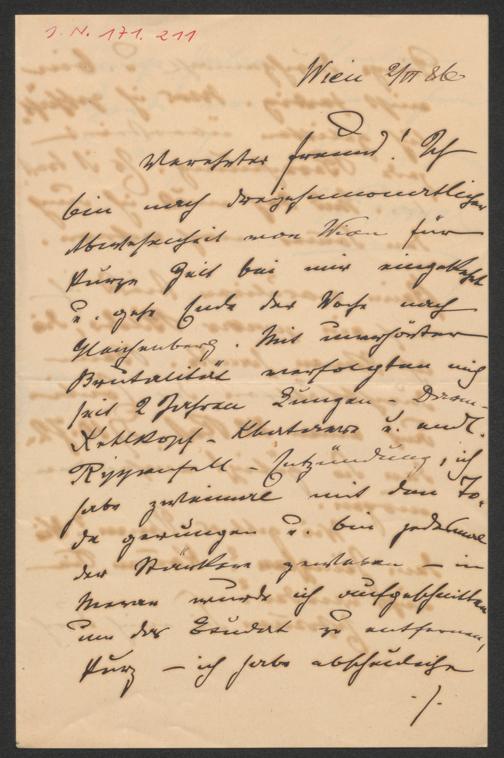 J. N. 171. 211
Wien 2/VI 86
Verehrter Freund! Ich
bin nach dreizehnmonatlicher
Abwesenheit von Wien für
kurze Zeit bei mir eingekehrt
u. gehe Ende der Woche nach
Gleichenberg. Mit unerhörter
Brutalität verfolgten mich
seit 2 Jahren Lungen- Darm-
Kehlkopf- Khatarre u. endl.
Rippenfell-Entzündung, ich
habe zweimal mit dem To-
de gerungen u. bin jedesmal
der Stärkere geblieben – in
Meran wurde ich aufgeschnitten
um das Exudat zu entfernen,
kurz – ich habe abscheuliche
./.